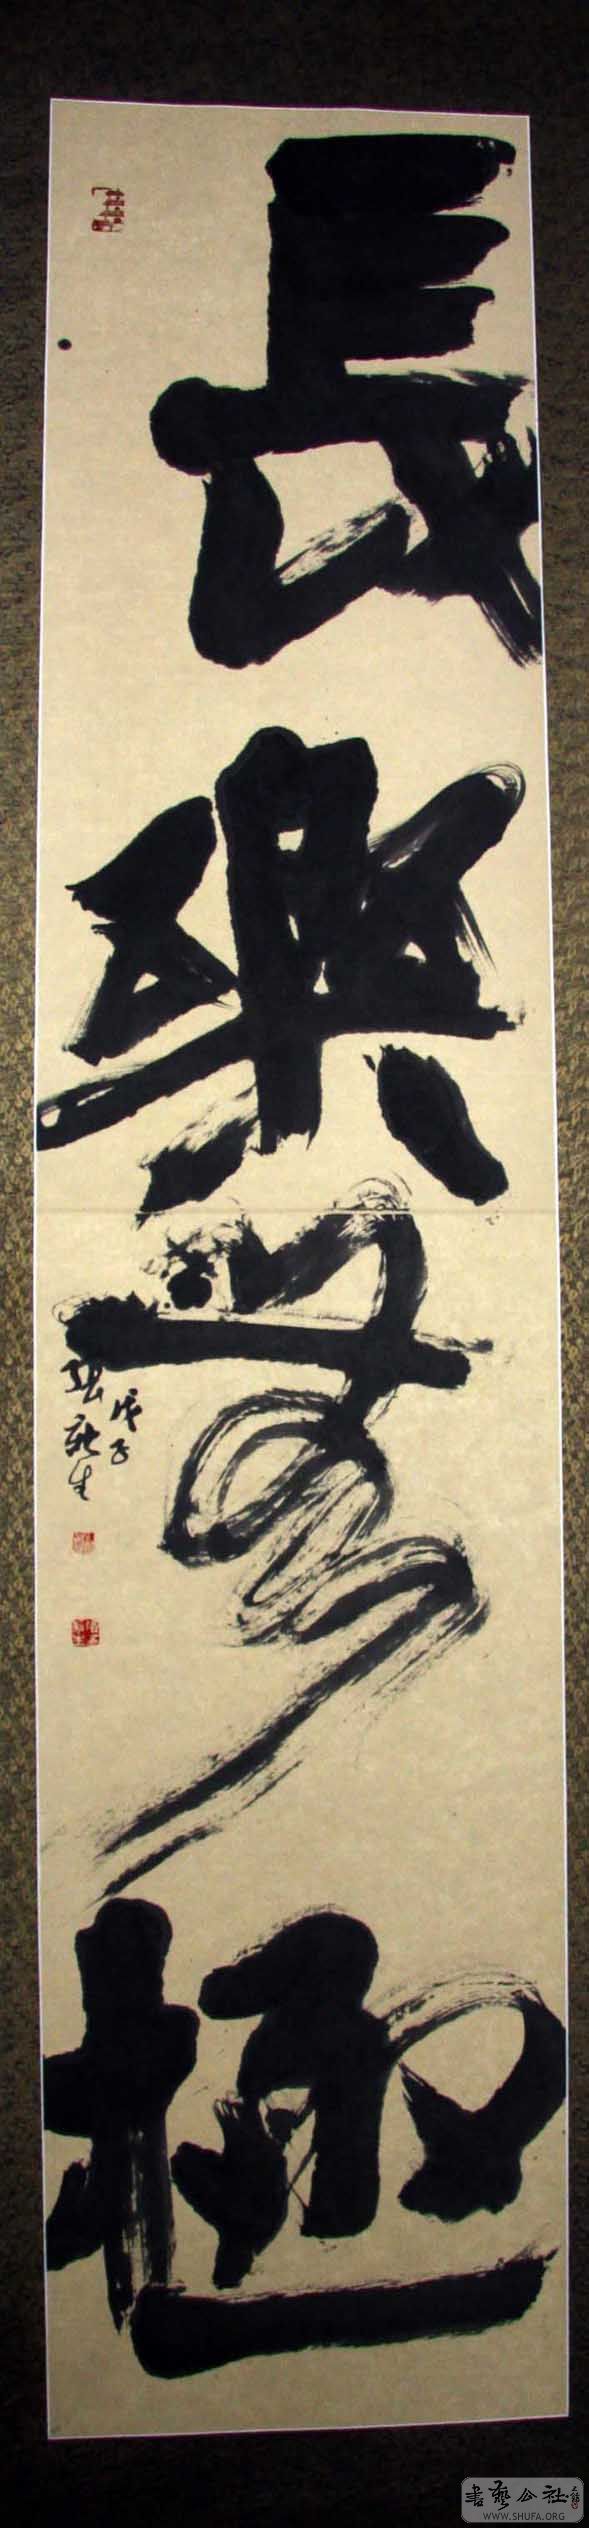 長樂無極
戊子
張新生
書藝公社
WWW.SHUFA.ORG